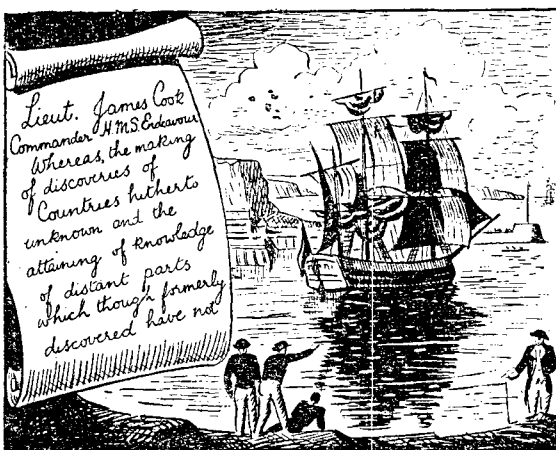 Lieut. James Cook
Commander H.M.S. Endeavour
Whereas, the making
of discoveries of
Countries hitherto
unknown and the
attaining of knowledge
of distant parts
which though formerly
discovered have not